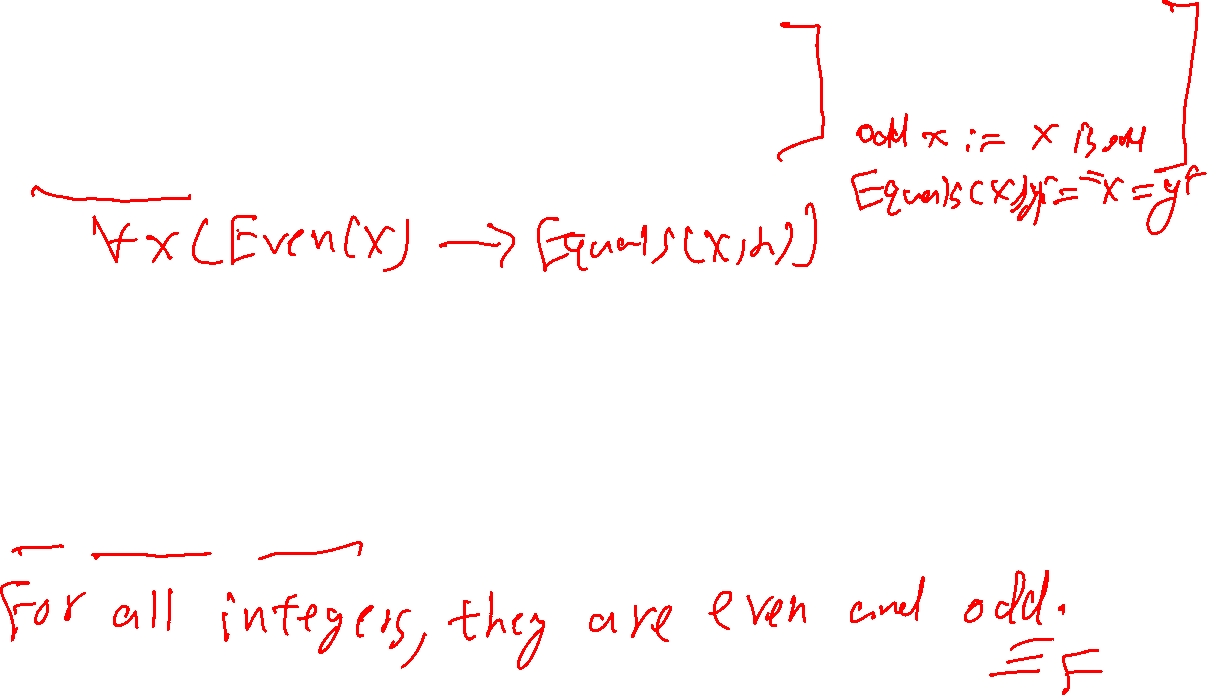 odd x := x is odd
Equals(x,y) := "x = y"
∀x(Even(x) → Equals(x,2))
For all integers, they are even and odd.
≡ F